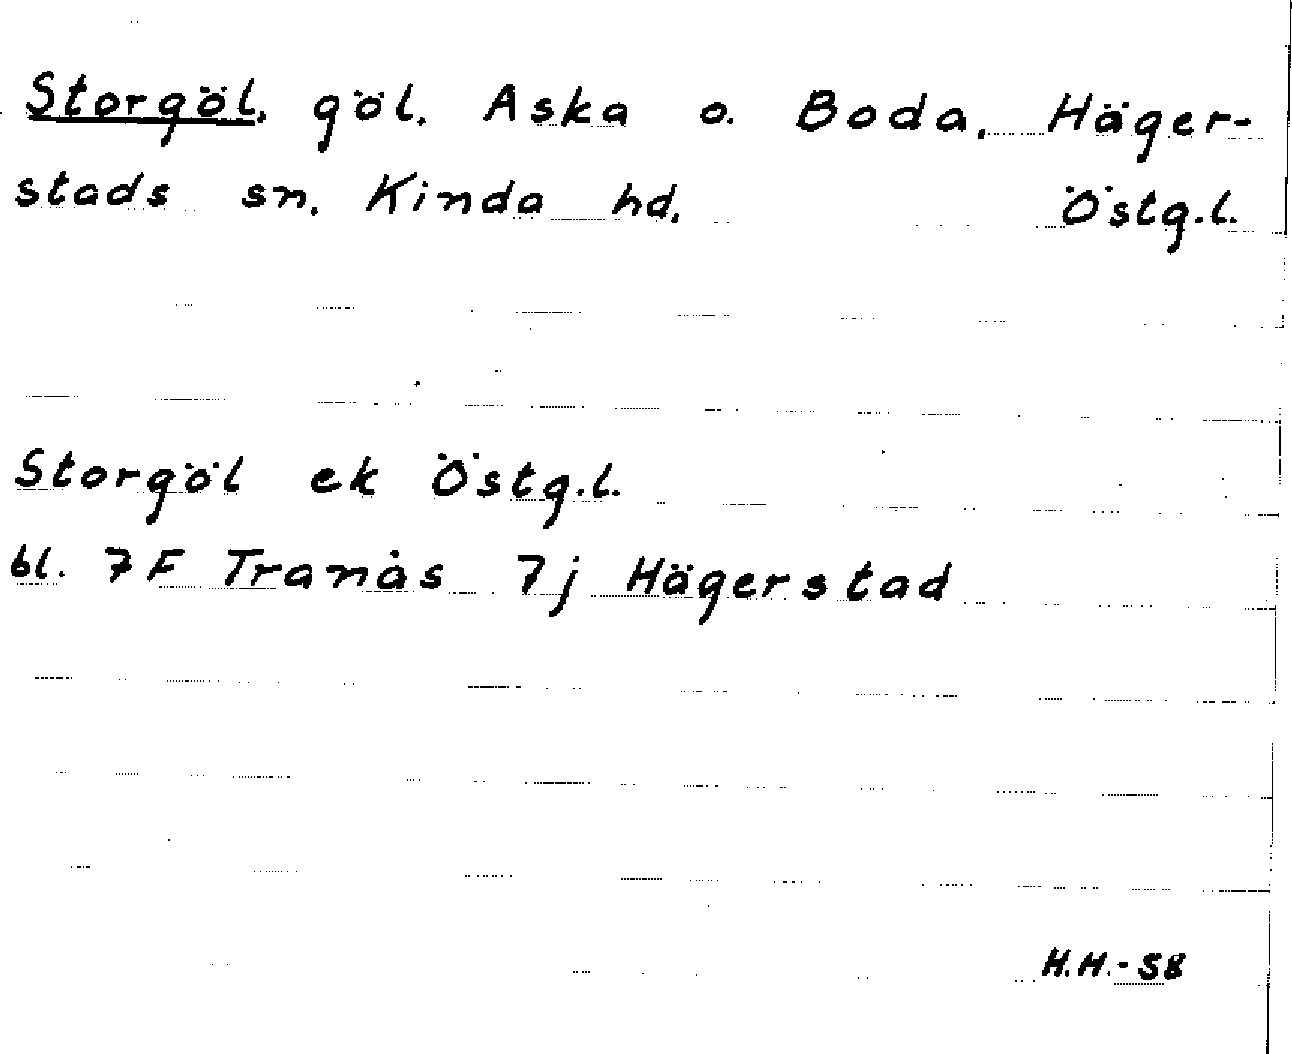 Storgöl, göl, Aska o. Boda, Häger-
stads sn, Kinda hd, Östg.l.
Storgöl ek Östg.l.
bl. 7F Tranås 7j Hägerstad
H.H.-58